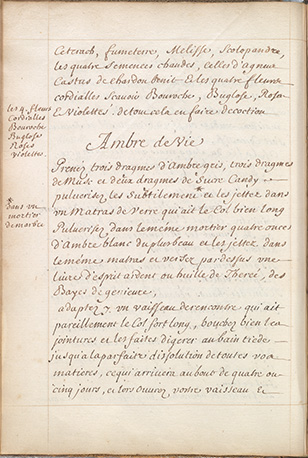 Cetrach, fumeterre, Melisse, Scolopandre,
les quatre Semences chaudes, Celles d'agnus
Castus de Chardon benit Et les quatre fleurs
cordialles Scavoir Bouroche, Buglose, Roses
Et Violettes, de tout cela en faire decoction
les 4 fleurs
Cordialles
Bouroche
Buglose
Roses
Violettes.
Ambre de Vie
Prenez trois dragmes d'Ambre gris, trois dragmes
de Musk et deux dragmes de Sucre Candy
pulverisez les Subtilement et les jettez dans
*dans un
mortier
de marbre
un Matras de Verre qui ait le Col bien long
Pulverisez dans le même mortier quatre onces
d'Ambre blanc du plus beau et les jettez dans
le même matras et versez par dessus une
livre d'esprit ardent ou huille de Therebi, des
Bayes de genievre,
adaptez y un vaisseau de rencontre qui ait
pareillement le Col fort long, bouchez bien les
jointures et les faites digerer au bain tiede
jusqu'a la parfaite dissolution de toutes vos
matieres, ce qui arrivera au bout de quatre ou
cinq jours, et lors ouvrez vostre vaisseau Et